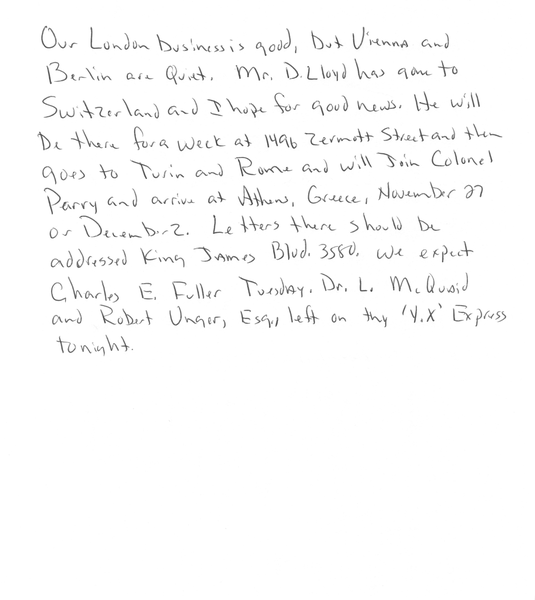 Our London business is good, but Vienna and
Berlin are Quiet. Mr. D. Lloyd has gone to
Switzerland and I hope for good news. He will
be there for a week at 1496 Zermott Street and then
goes to Turin and Rome and will Join Colonel
Parry and arrive at Athens, Greece, November 27
or December 2. Letters there should be
addressed King James Blvd. 3580. We expect
Charles E. Fuller Tuesday. Dr. L. McQuaid
and Robert Unger, Esq., left on thy 'Y.X' Express
tonight.